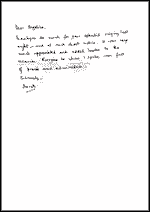 Dear Angelina,
Thank you so much for your splendid singing last
night - and at such short notice. It was very
much appreciated and added lustre to the
occasion. Everyone to whom I spoke was full
of praise and admiration.
Sincerely,